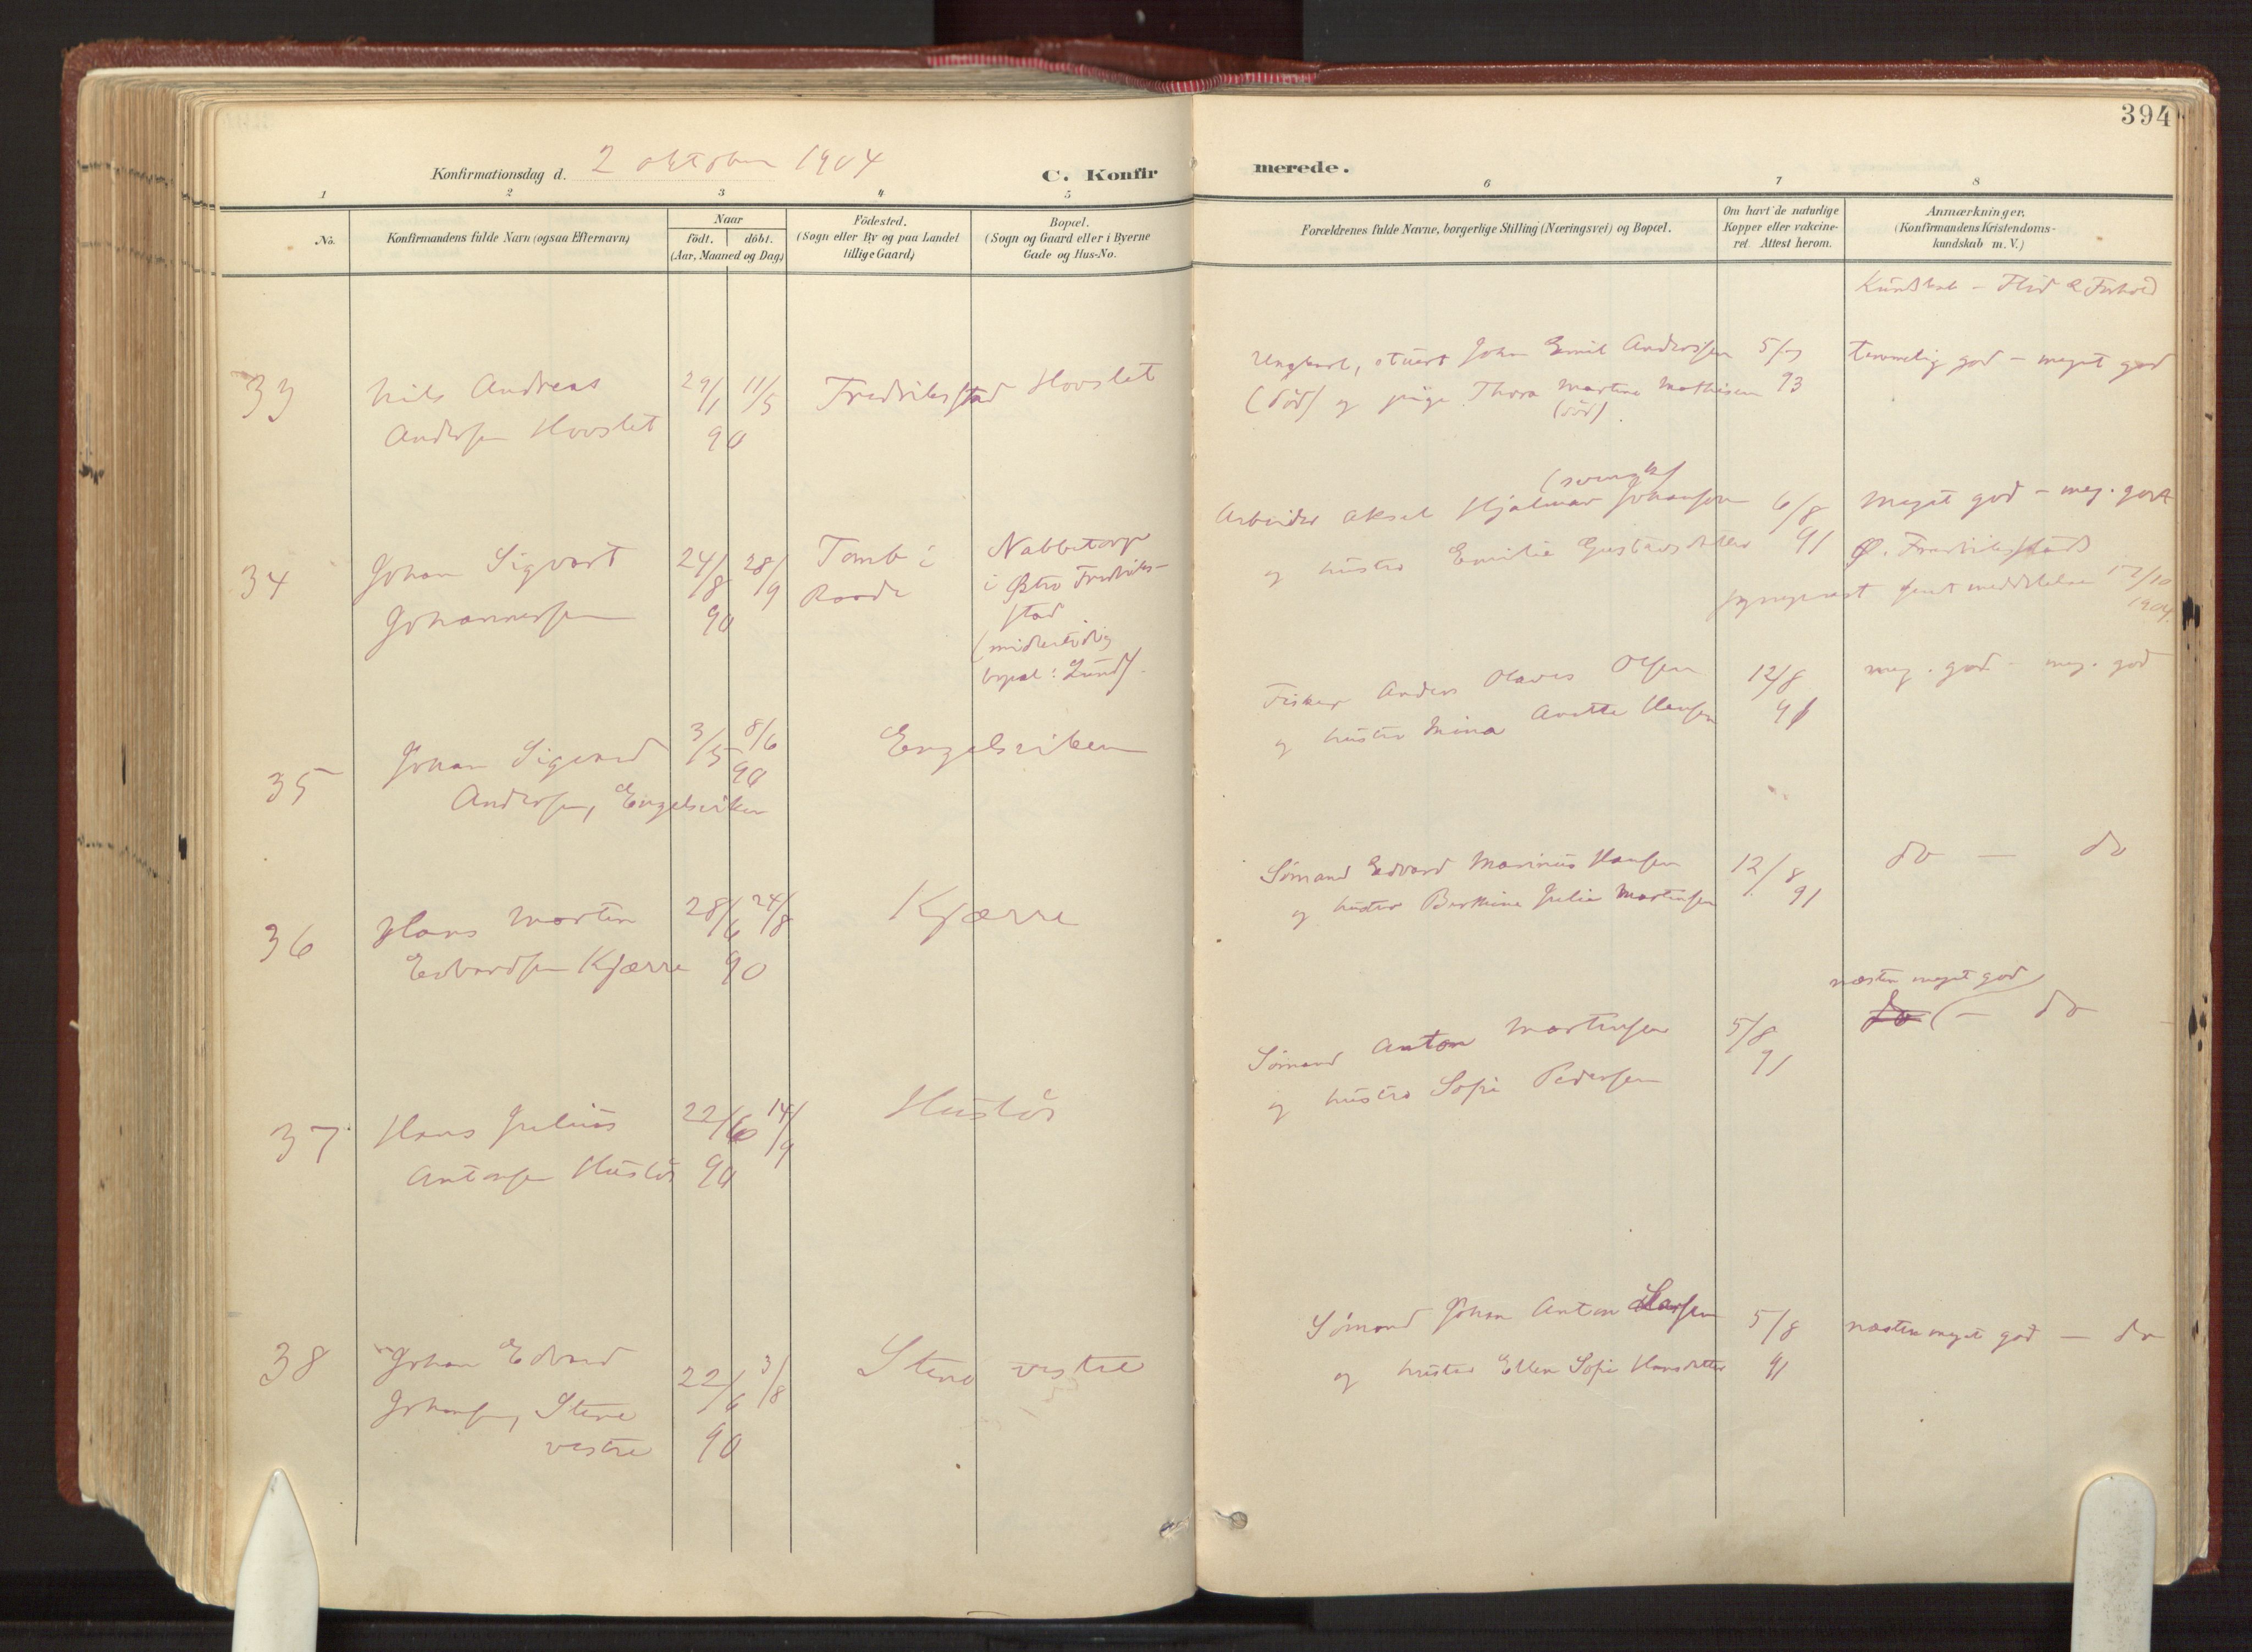 394
Konfirmationsdag d. 2 oktober 1904
C. Konfirmerede.
1 2 3 4 5 6 7 8
No.
Konfirmandens fulde Navn (ogsaa Efternavn)
Naar
födt. döbt.
(Aar, Maaned og Dag)
Födested.
(Sogn eller By og paa Landet
tillige Gaard)
Bopæl.
(Sogn og Gaard eller i Byerne
Gade og Hus-No.
Forældrenes fulde Navne, borgerlige Stilling (Næringsvei) og Bopæl.
Om havt de naturlige
Kopper eller vakcine-
ret. Attest herom.
Anmærkninger.
(Konfirmandens Kristendoms-
kundskab m. V.)
Kundskab - Flid & Forhold
33 Nils Andreas 29/1 11/5 Fredriksstad Hovslet
Andersen Hovslet 90
Ungkarl, stuert John Emil Anderssen 5/7 Temmelig god - meget god
(död) og pige Thora Martine Mathisen 93
(död).
34 Johan Sigvart 24/8 28/9 Tomb i Nabbetorp
Johannessen 90 Raade i Østre Fredriks-
stad
(midlertidig
bopæl: Lund).
Arbeider Aksel Hjalmar Johansen 6/8 Meget god - meg. godt
og hustru Emilie Gustavsdatter 91 Ø. Fredriksstads
meddelelse 17/10
1904.
35 Johan Sigvard 3/5 8/6 Engelsviken
90
Andersen, Engelsviken
Fisker Anders Olaves Olsen 12/8 meg. god - meg. god
og hustru Mina Anette Hansen 91
36 Hans Morten 28/6 24/8 Kjærre
Edvardsen Kjærre 90
Sömand Edvard Marinius Hansen 12/8 do - do
og hustru Berthine Julie Mortensen 91
37 Hans Julius 22/6 14/9 Huslös
Antonsen Huslös 90
næsten meget god
Sömand Anton Mortensen 5/8 do - do
og hustru Sofie Pedersen 91
38 Johan Edvard 22/6 3/8 Stene vestre
Johansen, Stene
vestre 90
Sömand Johan Anton Larsen 5/8 næsten meget god - do
og hustru Ellen Sofie Hansdatter 91